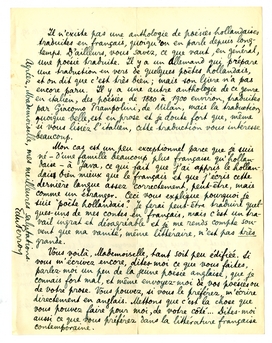 Il n'existe pas une anthologie de poésies hollandaises,
traduites en français, quoiqu'on en parle depuis long-
temps. D'ailleurs, vous savez, ce que vaut, en général,
une poésie traduite. Il y a un allemand qui prépare
une traduction en vers de quelques poètes hollandais,
et on dit que c'est très bien; mais son livre n'a pas
encore paru. Il y a une autre anthologie de ce genre
en italien, des poésies de 1880 à 1900 environ, traduites
par Giacomo Prampolini, de Milan, mais la traduction
quoique belle, est en prose et je doute fort que, même
si vous lisiez l'italien, cette traduction vous intéresse
beaucoup.
Mon cas est un peu exceptionnel parce que je suis
né - d'une famille beaucoup plus française qu'hollan-
daise - à Java, ce qui fait que j'ai appris le hollan-
dais bien mieux que le français et que j'écris cette
dernière langue assez correctement, peut-être, mais
comme un étranger. Ceci vous explique pourquoi je
suis "poète hollandais". Je ferai peut-être traduire quel-
ques-uns de mes contes en français, mais c'est un tra-
vail ingrat et désagréable et je me rends compte sou-
vent que ma vanité, même littéraire, n'est pas très
grande.
Vous voilà, Mademoiselle, tant soit peu édifiée. Si
vous m'écrivez encore, dites-moi ce que vous faites,
parlez-moi un peu de la jeune poésie anglaise, que je
connais fort mal, et même envoyez-moi de vos poésies ou
de votre prose. Vous pouvez, si vous le préférez, m'écrire
directement en anglais. Mettons que c'est la chose que
vous pouvez faire pour moi, de votre côté. Dites-moi
aussi ce que vous préférez dans la littérature française
contemporaine.
Agréez, Mademoiselle, mes meilleures salutations